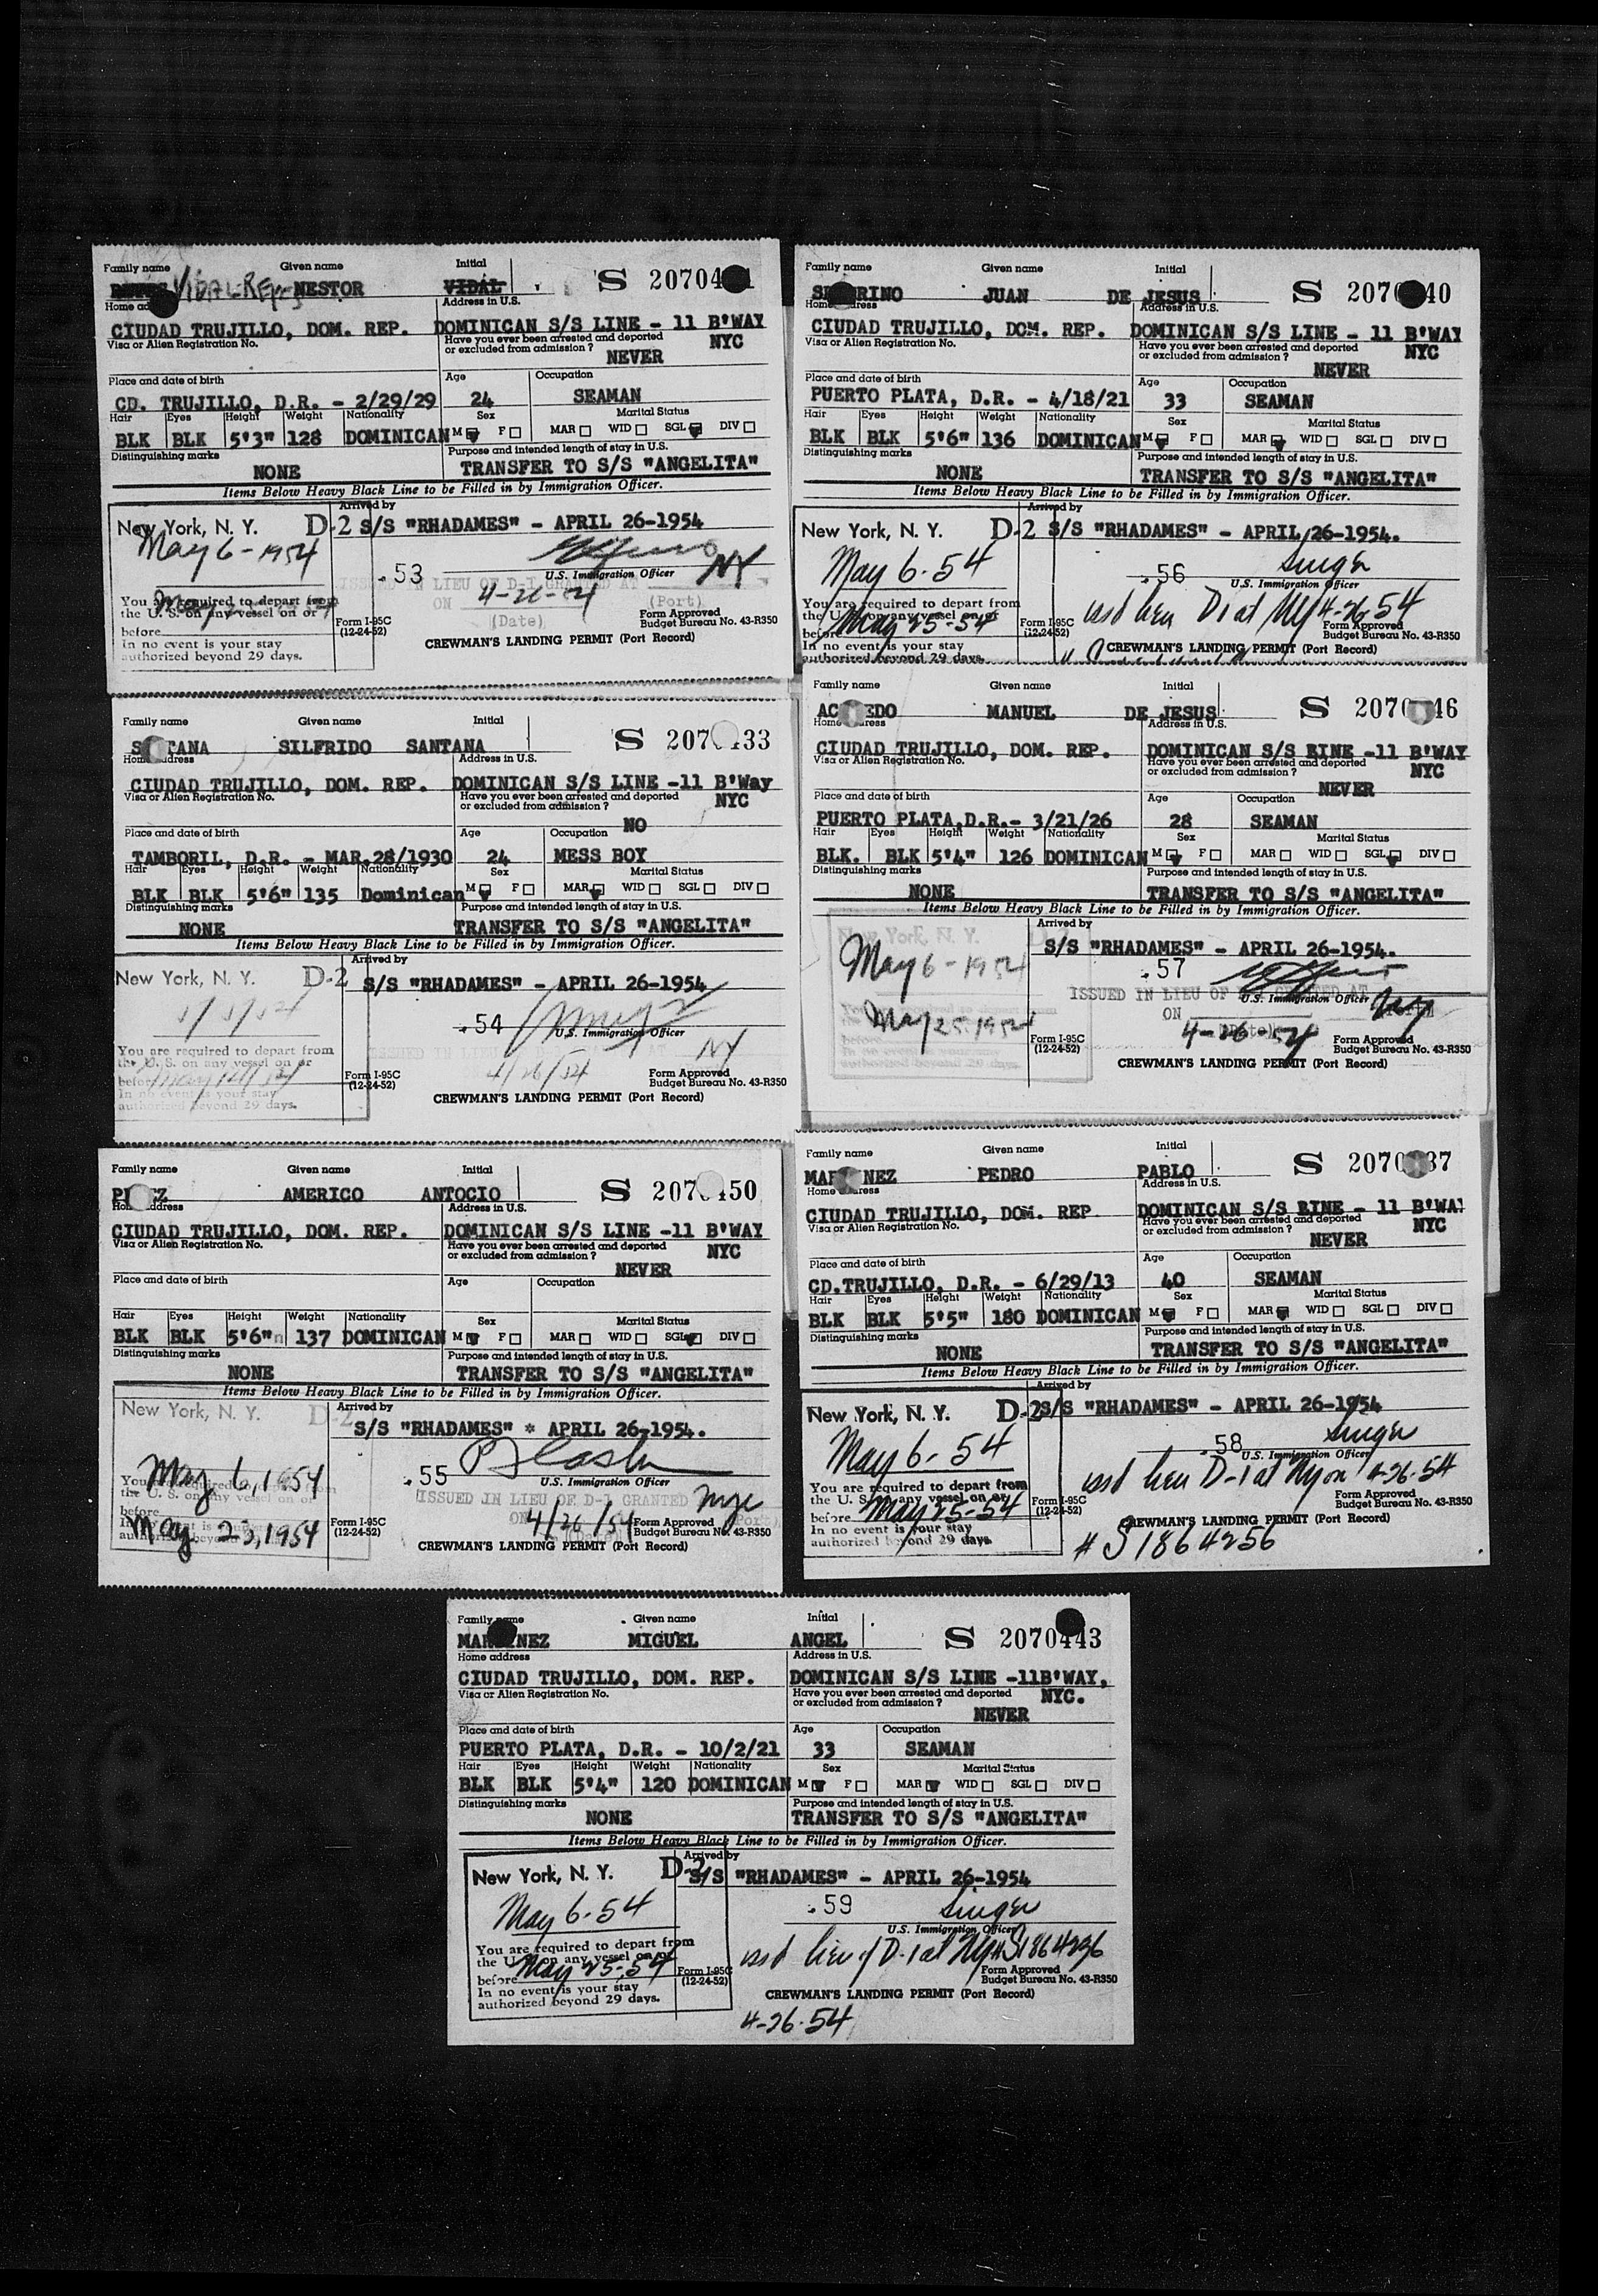 Family name Given name Initial
VIDAL-Rep- NESTOR VIDAL S 20704
Home address Address in U.S.
CIUDAD TRUJILLO, DOM. REP. DOMINICAN S/S LINE - 11 B'WAY
Visa or Alien Registration No. Have you ever been arrested and deported or excluded from admission? NYC
NEVER
Place and date of birth Age Occupation
CD. TRUJILLO, D.R. - 2/29/29 24 SEAMAN
Hair Eyes Height Weight Nationality Sex Marital Status
BLK BLK 5'3" 128 DOMINICAN M F MAR WID SGL DIV
Distinguishing marks Purpose and intended length of stay in U.S.
NONE TRANSFER TO S/S "ANGELITA"
Items Below Heavy Black Line to be Filled in by Immigration Officer.
Arrived by
New York, N. Y. D-2 S/S "RHADAMES" - APRIL 26-1954
May 6-1954
.53 U.S. Immigration Officer NY
ISSUED IN LIEU OF D-1 GRANTED AT
ON 4-26-54 (Port)
(Date)
You are required to depart from
the U. S. on any vessel on or
before
In no event is your stay
authorized beyond 29 days.
Form I-95C
(12-24-52)
Form Approved
Budget Bureau No. 43-R350
CREWMAN'S LANDING PERMIT (Port Record)
Family name Given name Initial
S RINO JUAN DE JESUS S 207 40
Home address Address in U.S.
CIUDAD TRUJILLO, DOM. REP. DOMINICAN S/S LINE - 11 B'WAY
Visa or Alien Registration No. Have you ever been arrested and deported or excluded from admission? NYC
NEVER
Place and date of birth Age Occupation
PUERTO PLATA, D.R. - 4/18/21 33 SEAMAN
Hair Eyes Height Weight Nationality Sex Marital Status
BLK BLK 5'6" 136 DOMINICAN M F MAR WID SGL DIV
Distinguishing marks Purpose and intended length of stay in U.S.
NONE TRANSFER TO S/S "ANGELITA"
Items Below Heavy Black Line to be Filled in by Immigration Officer.
Arrived by
New York, N. Y. D-2 S/S "RHADAMES" - APRIL 26-1954.
May 6-54
.56 Singer
U.S. Immigration Officer
issd lieu D1 at NY 4-26-54
You are required to depart from
the U. S. on any vessel on or
before May 25-54
In no event is your stay
authorized beyond 29 days.
Form I-95C
(12-24-52)
Form Approved
Budget Bureau No. 43-R350
CREWMAN'S LANDING PERMIT (Port Record)
Family name Given name Initial
S TANA SILFRIDO SANTANA S 207 433
Home address Address in U.S.
CIUDAD TRUJILLO, DOM. REP. DOMINICAN S/S LINE -11 B'Way
Visa or Alien Registration No. Have you ever been arrested and deported or excluded from admission? NYC
NO
Place and date of birth Age Occupation
TAMBORIL, D.R. - MAR.28/1930 24 MESS BOY
Hair Eyes Height Weight Nationality Sex Marital Status
BLK BLK 5'6" 135 Dominican M F MAR WID SGL DIV
Distinguishing marks Purpose and intended length of stay in U.S.
NONE TRANSFER TO S/S "ANGELITA"
Items Below Heavy Black Line to be Filled in by Immigration Officer.
Arrived by
New York, N. Y. D-2 S/S "RHADAMES" - APRIL 26-1954
.54 U.S. Immigration Officer
NY
4/26/54
You are required to depart from
the U. S. on any vessel on or
before
In no event is your stay
authorized beyond 29 days.
Form I-95C
(12-24-52)
Form Approved
Budget Bureau No. 43-R350
CREWMAN'S LANDING PERMIT (Port Record)
Family name Given name Initial
AC EDO MANUEL DE JESUS S 207 46
Home address Address in U.S.
CIUDAD TRUJILLO, DOM. REP. DOMINICAN S/S EINE -11 B'WAY
Visa or Alien Registration No. Have you ever been arrested and deported or excluded from admission? NYC
NEVER
Place and date of birth Age Occupation
PUERTO PLATA,D.R.- 3/21/26 28 SEAMAN
Hair Eyes Height Weight Nationality Sex Marital Status
BLK. BLK 5'4" 126 DOMINICAN M F MAR WID SGL DIV
Distinguishing marks Purpose and intended length of stay in U.S.
NONE TRANSFER TO S/S "ANGELITA"
Items Below Heavy Black Line to be Filled in by Immigration Officer.
New York, N. Y. Arrived by
S/S "RHADAMES" - APRIL 26-1954.
May 6-1954
.57
ISSUED IN LIEU OF U.S. Immigration Officer
ON 4-26-54
May 25-1954
Form I-95C
(12-24-52)
Form Approved
Budget Bureau No. 43-R350
CREWMAN'S LANDING PERMIT (Port Record)
Family name Given name Initial
P Z AMERICO ANTOCIO S 207 450
Home address Address in U.S.
CIUDAD TRUJILLO, DOM. REP. DOMINICAN S/S LINE -11 B'WAY
Visa or Alien Registration No. Have you ever been arrested and deported or excluded from admission? NYC
NEVER
Place and date of birth Age Occupation
Hair Eyes Height Weight Nationality Sex Marital Status
BLK BLK 5'6" 137 DOMINICAN M F MAR WID SGL DIV
Distinguishing marks Purpose and intended length of stay in U.S.
NONE TRANSFER TO S/S "ANGELITA"
Items Below Heavy Black Line to be Filled in by Immigration Officer.
New York, N. Y. D-2 Arrived by
S/S "RHADAMES" * APRIL 26-1954.
.55 U.S. Immigration Officer
May 6, 1954
ISSUED IN LIEU OF D-1 GRANTED
ON 4/26/54
May 23, 1954
Form I-95C
(12-24-52)
Form Approved
Budget Bureau No. 43-R350
CREWMAN'S LANDING PERMIT (Port Record)
Family name Given name Initial
MAR NEZ PEDRO PABLO S 207 37
Home address Address in U.S.
CIUDAD TRUJILLO, DOM. REP DOMINICAN S/S EINE - 11 B'WA
Visa or Alien Registration No. Have you ever been arrested and deported or excluded from admission? NYC
NEVER
Place and date of birth Age Occupation
CD.TRUJILLO, D.R. - 6/29/13 40 SEAMAN
Hair Eyes Height Weight Nationality Sex Marital Status
BLK BLK 5'5" 180 DOMINICAN M F MAR WID SGL DIV
Distinguishing marks Purpose and intended length of stay in U.S.
NONE TRANSFER TO S/S "ANGELITA"
Items Below Heavy Black Line to be Filled in by Immigration Officer.
Arrived by
New York, N. Y. D-2 S/S "RHADAMES" - APRIL 26-1954
May 6-54
.58 Singer
U.S. Immigration Officer
issd lieu D-1 at NY on 4-26-54
You are required to depart from
the U. S. on any vessel on or
before May 25-54
In no event is your stay
authorized beyond 29 days.
Form I-95C
(12-24-52)
Form Approved
Budget Bureau No. 43-R350
CREWMAN'S LANDING PERMIT (Port Record)
# S1864256
Family name Given name Initial
MAR NEZ MIGUEL ANGEL S 2070443
Home address Address in U.S.
CIUDAD TRUJILLO, DOM. REP. DOMINICAN S/S LINE -11B'WAY,
Visa or Alien Registration No. Have you ever been arrested and deported or excluded from admission? NYC.
NEVER
Place and date of birth Age Occupation
PUERTO PLATA, D.R. - 10/2/21 33 SEAMAN
Hair Eyes Height Weight Nationality Sex Marital Status
BLK BLK 5'4" 120 DOMINICAN M F MAR WID SGL DIV
Distinguishing marks Purpose and intended length of stay in U.S.
NONE TRANSFER TO S/S "ANGELITA"
Items Below Heavy Black Line to be Filled in by Immigration Officer.
Arrived by
New York, N. Y. D-2 S/S "RHADAMES" - APRIL 26-1954
May 6-54
.59 Singer
U.S. Immigration Officer
issd lieu of D-1 at NY # S1864236
You are required to depart from
the U. S. on any vessel on or
before May 25-54
In no event is your stay
authorized beyond 29 days.
Form I-95C
(12-24-52)
Form Approved
Budget Bureau No. 43-R350
CREWMAN'S LANDING PERMIT (Port Record)
4-26-54